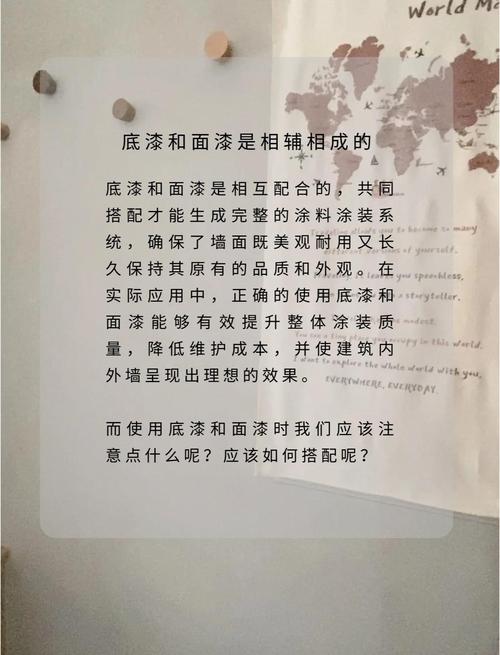 World Ma
底漆和面漆是相辅相成的
底漆和面漆是相互配合的，共同
搭配才能生成完整的涂料涂装系
统，确保了墙面既美观耐用又长
久保持其原有的品质和外观。在
实际应用中，正确的使用底漆和
面漆能够有效提升整体涂装质
量，降低维护成本，并使建筑内
外墙呈现出理想的效果。
而使用底漆和面漆时我们应该注
意点什么呢？应该如何搭配呢？
Traveling allows you to become so many
different versions of yourself.
leaves you speechless,
a storyteller.
modest.
you occupy in this world.
I want to explore the whole world with you,
EVERYWHERE, EVERYDAY.